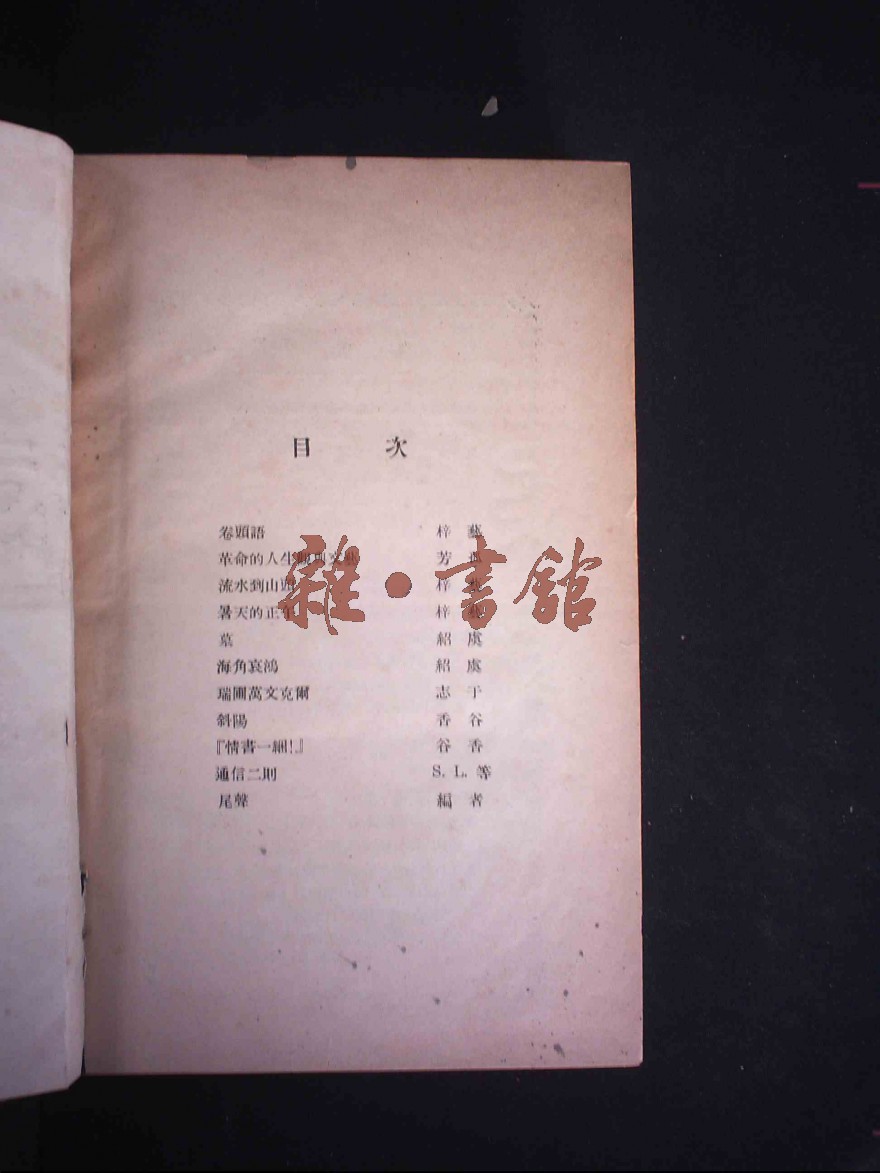 目次
卷頭語 梓藝
革命的人生觀與文藝 芳孤
流水到山 梓
暑天的正午 梓藝
墓 紹虞
海角哀鴻 紹虞
瑞圃萬文克爾 志于
斜陽 香谷
『情書一綑!』 谷香
通信二則 S. L. 等
尾聲 編者
雜·書館